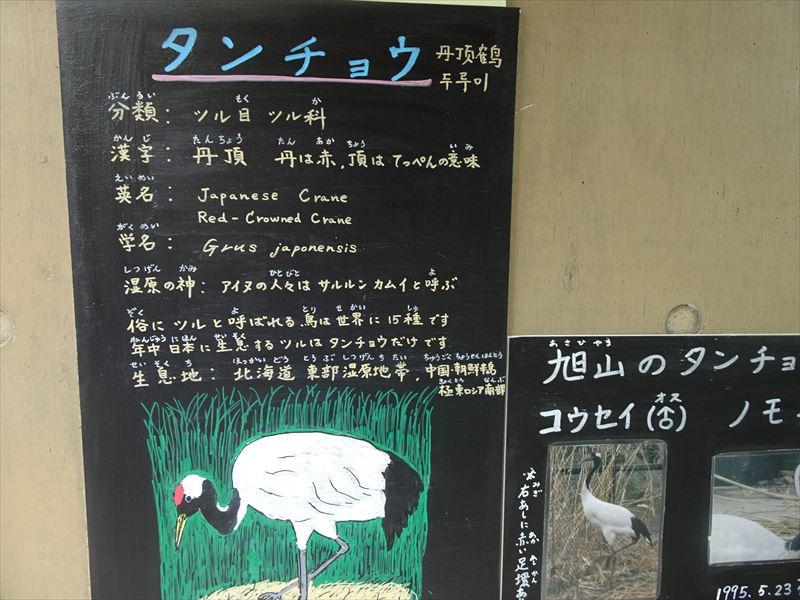 タンチョウ 丹顶鹤
두루미
ぶんるい もく か
分類: ツル目 ツル科
かんじ たんちょう たん あか ちょう いみ
漢字: 丹頂 丹は赤,頂は てっぺんの意味
えいめい
英名: Japanese Crane
Red-Crowned Crane
がくめい
学名: Grus japonensis
しつげん かみ ひとびと よ
湿原の神: アイヌの人々は サルルンカムイと呼ぶ
ぞく よ とり せかい しゅ
俗に ツルと呼ばれる鳥は世界に15種です
ねんじゅうにほん せいそく
年中日本に生息するツルはタンチョウだけです
せいそくち ほっかいどう とうぶ しつげんちたい ちゅうごく ちょうせんはんとう
生息地: 北海道 東部湿原地帯, 中国・朝鮮半島
きょくとう なんぶ
極東ロシア南部
あさひやま
旭山のタンチョ
オス
コウセイ(♂) ノモ
みぎ あか あしかん
右あしに赤い足環あ
1995.5.23